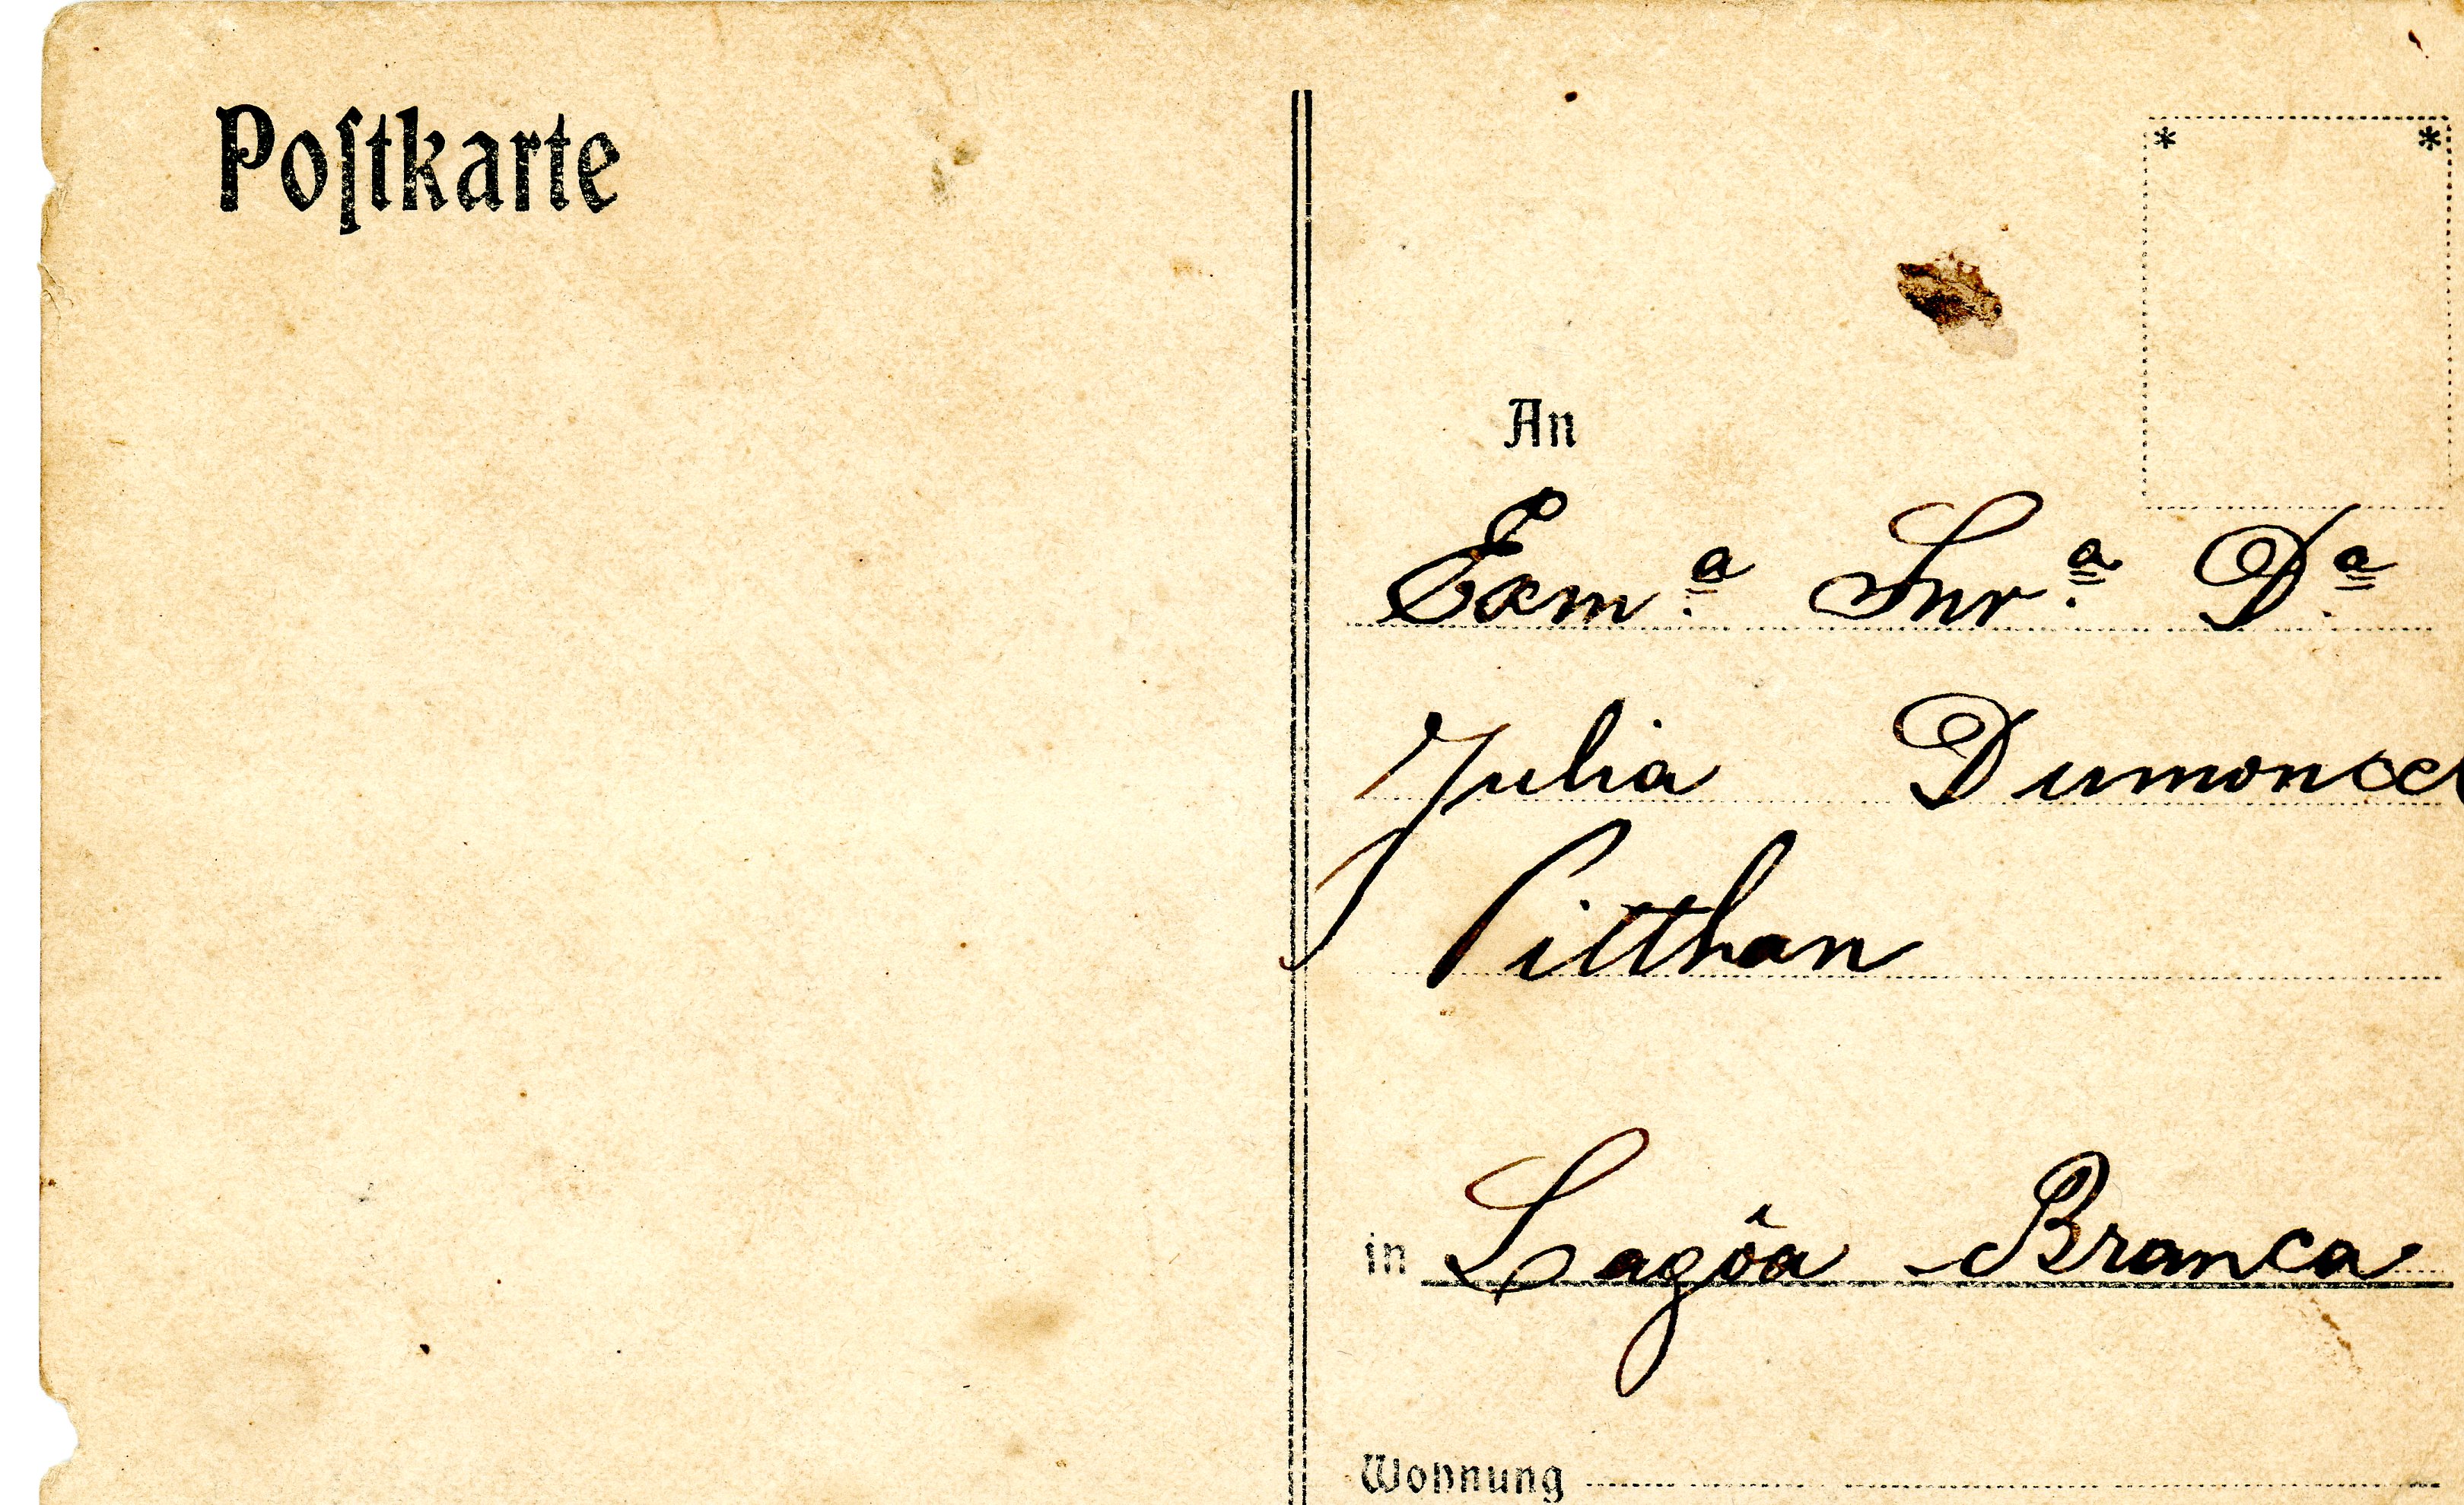 Poſtkarte
An
Exm.ª Snr.ª D.ª
Julia Dumoncel
Pitthan
in Lagôa Branca
Wohnung